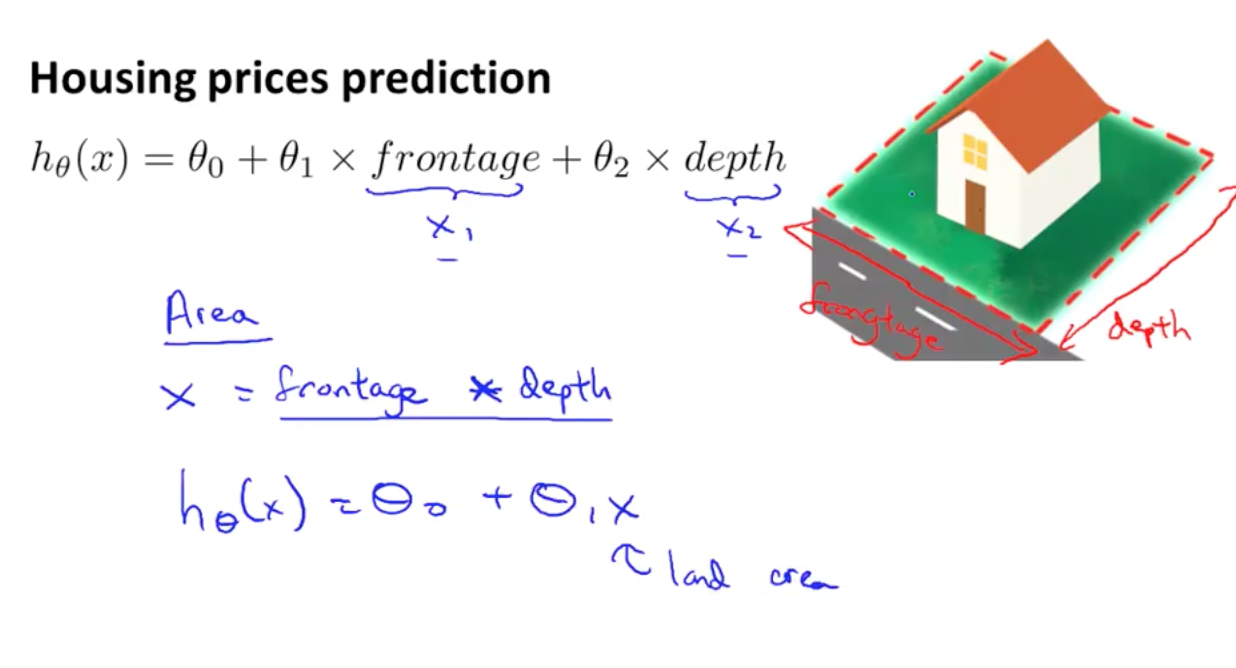 Housing prices prediction
hθ(x) = θ0 + θ1 × frontage + θ2 × depth
x1 x2
frongtage
depth
Area
x = frontage * depth
hθ(x) = θ0 + θ1x
land area